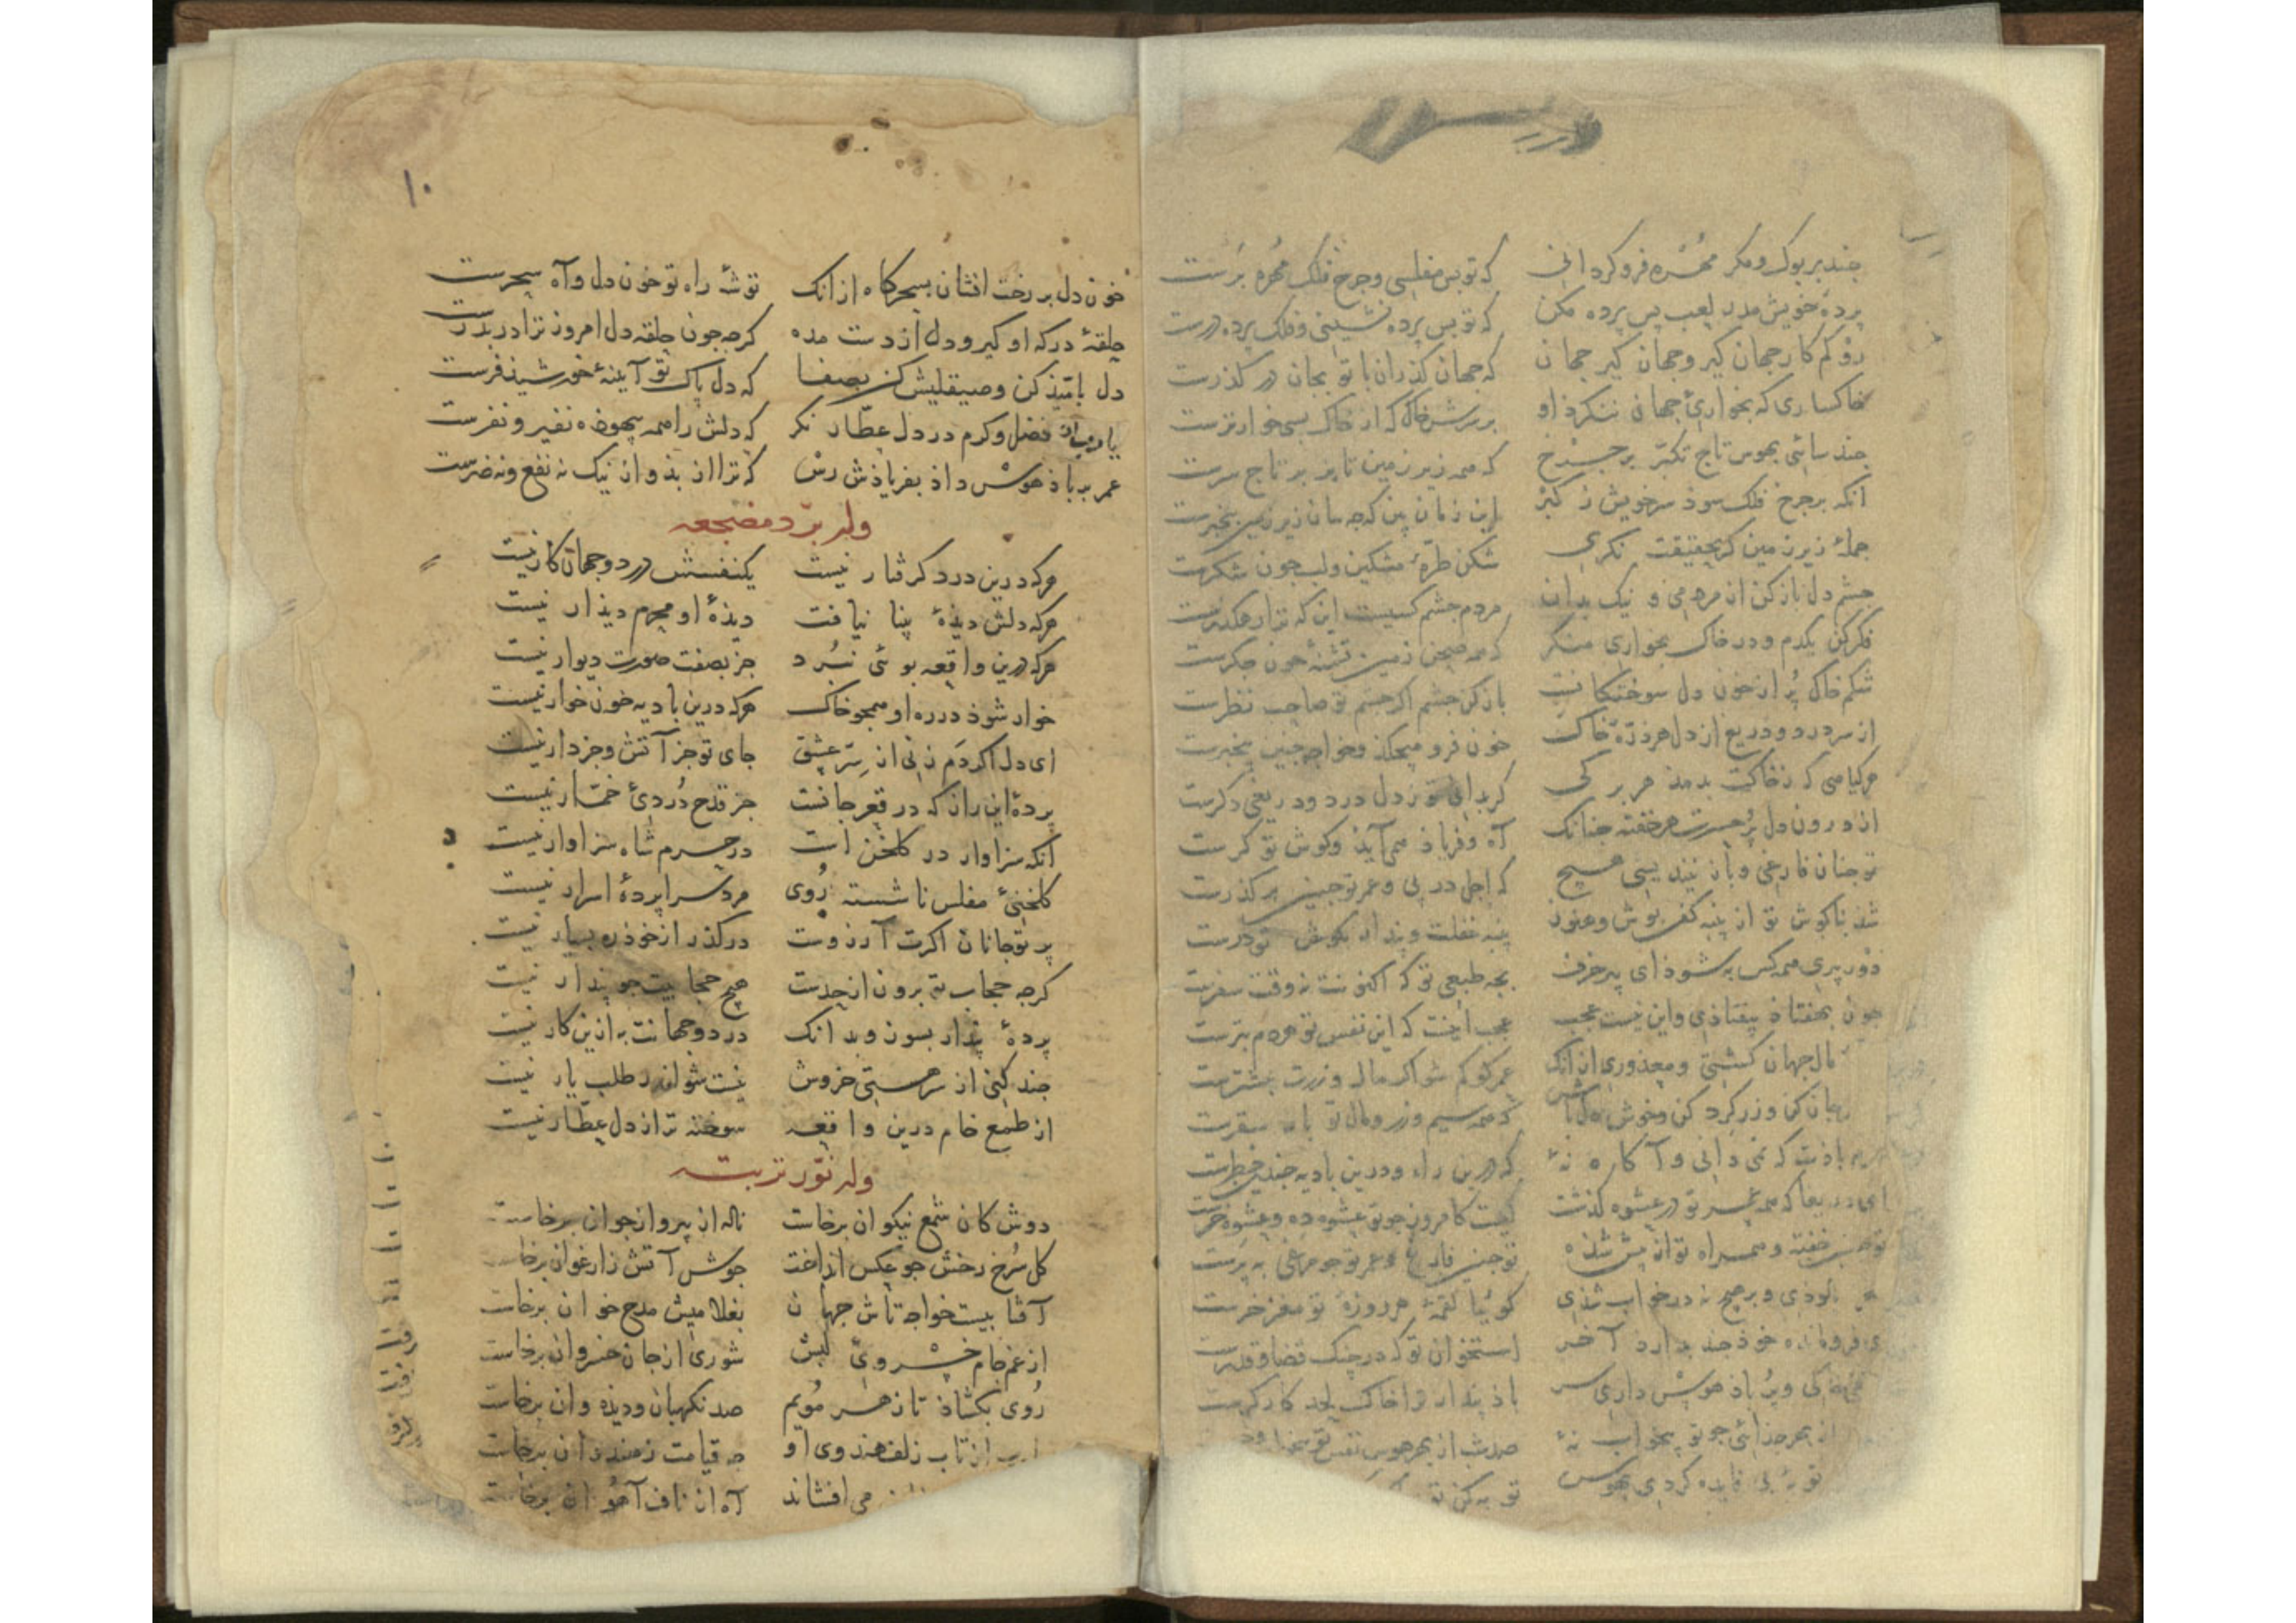 جند بر بوک و مکر مهره فرو کردانی که تو بس مفلسی و جرخ فلک مهره برست
پردهٔ خویش مدر لعب پس پرده مکن که تو بس پرده نشینی و فلک پرده درست
رو کم کار جهان کیر و جهان کیر جهان که جهان کذران با تو بجان در کذرست
خاکساری که بخواری جهان ننکرذ او بر سرش خاک که از خاک بسی خوارترست
جند سائی بهوس تاج تکبر بر جرخ که همه زیر زمین تا بزبر تاج سرست
انکه بر جرخ فلک سوذ سر خویش ز کبر این زمان بین که جه سان زیر زمین بیخبرست
جملهٔ زیر زمین کر بحقیقت نکری شکن طرهٔ مشکین و لب جون شکرست
جشم دل باز کن از مردمی و نیک بدان مردم جشم کسیست این که ترا رهکذرست
فکر کن یکدم و در خاک بخواری منکر که همه صحن زمین تشنهٔ خون جکرست
شکم خاک پر از خون دل سوختکانست باز کن جشم اکر جشم تو صاحب نظرست
از سر درد و دریغ از دل هر ذرهٔ خاک خون فرو میجکذ و خواجه جنین بیخبرست
هر کیاهی که ز خاکت بدمذ هر برکی کر بدانی تو ز دل درد و دریغی دکرست
از درون دل پر حسرت هر خفته جنانک آه و فریاذ همی آیذ و کوش تو کرست
تو جنان فارغی و باز نیندیشی هیچ که اجل در پی و عمر تو جنین بر کذرست
شذ بناکوش تو از پنبه کفن پوش و هنوز پنبهٔ غفلت و پندار بکوش تو درست
دور پیری همه کس به شوذ ای پیر خرف بجه طبعی تو که اکنونت نه وقت سفرست
جون بهفتاذ بیفتاذی و این نیست عجب عجب اینست که این نفس تو هر دم بترست
مال جهان کشتی و معذوری از انک عمر کو کم شو اکر مال و زرت بیشترست
جان کن و زر کرد کن و خوش میباش که همه سیم و زر و مال تو بار سفرست
باذت که نمی دانی و آکاه نهٔ که درین راه و درین بادیه جندین خطرست
ای دریغا که همه عمر تو در عشوه کذشت کیست کامروز جو تو عشوه ده و عشوه خرست
تو جنین خفته و همراه تو از پیش شذه تو جنین فارغ و عمر تو جو مرغی به پرست
در خواب شذی کوئیا لقمهٔ هر روزهٔ تو مغز خرست
فروماندهٔ خوذ جند بدارد آخر استخوان تو که در جنک قضا و قدرست
کی ویر باذ هوس داری سر باذ پندار ترا خاک لحد کارکرست
از بهر خدائی جو تو بیخواب نهٔ صد شب از بهر هوس نفس تو
توبهٔ بی فایده کردی بهوس توبه کن
۱۰
خون دل بر رخت افشان بسحرکاه از انک توشهٔ راه تو خون دل و آه سحرست
حلقهٔ درکه او کیر و دل از دست مده کرجه جون حلقه دل امروز ترا در بدرست
دل باتیذ کن و صیقلیش کن بصفا که دل پاک تو آیینهٔ خورشیذ فرست
یا رب از فضل و کرم در دل عطار نکر که دلش را همه بیهوذه نفیر و نفرست
عمر بر باذ هوس داذ بفریاذش رس که ترا از بذ و از نیک نه نفع و نه ضرست
وله برّد مضجعه
هرکه درین درد کرفتار نیست یکنفسش در دو جهان کار نیست
هرکه دلش دیذهٔ بینا نیافت دیذهٔ او محرم دیذار نیست
هرکه درین واقعه بوئی نبرد جز بصفت صورت دیوار نیست
خوار شوذ در ره او همجو خاک هرکه درین بادیه خون خوار نیست
ای دل اکر دم زنی از سر عشق جای تو جز آتش و جز دار نیست
پردهٔ این راز که در قعر جانست جز قدح دردی خمّار نیست
انکه سزاوار در کلخن است در حرم شاه سزاوار نیست
کلخنی مفلس ناشسته روی مرد سراپردهٔ اسرار نیست
پرتو جانان اکرت آرزوست درکذر از خوذ ره بسیار نیست
کرجه حجاب تو برون از حدست هیچ حجابیت جو پندار نیست
پردهٔ پندار بسوز و بدانک در دو جهانت به ازین کار نیست
جند کنی از سر هستی خروش نیست شو اندر طلب یار نیست
از طمع خام درین واقعه سوخته تر از دل عطّار نیست
وله نوّر تربته
دوش کان شمع نیکوان برخاست ناله از پیر و از جوان برخاست
کل سرخ رخش جو عکس انداخت جوش آتش ز ارغوان برخاست
آفتابیست خواجه تاش جهان بغلامیش مدح خوان برخاست
از غم جام خسروی لبش شوری از جان خسروان برخاست
روی بکشاذ تا ز هر مویم صد نکهبان و دیذه وان برخاست
از تاب زلف هندوی او جه قیامت ز هندوان برخاست
می افشاند آه از ناف آهوان برخاست